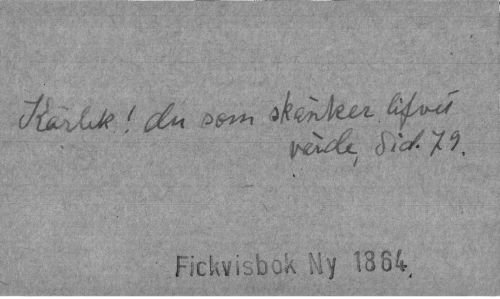 Kärlek! du som skänker lifvet
värde, Sid. 79.
Fickvisbok Ny 1864.